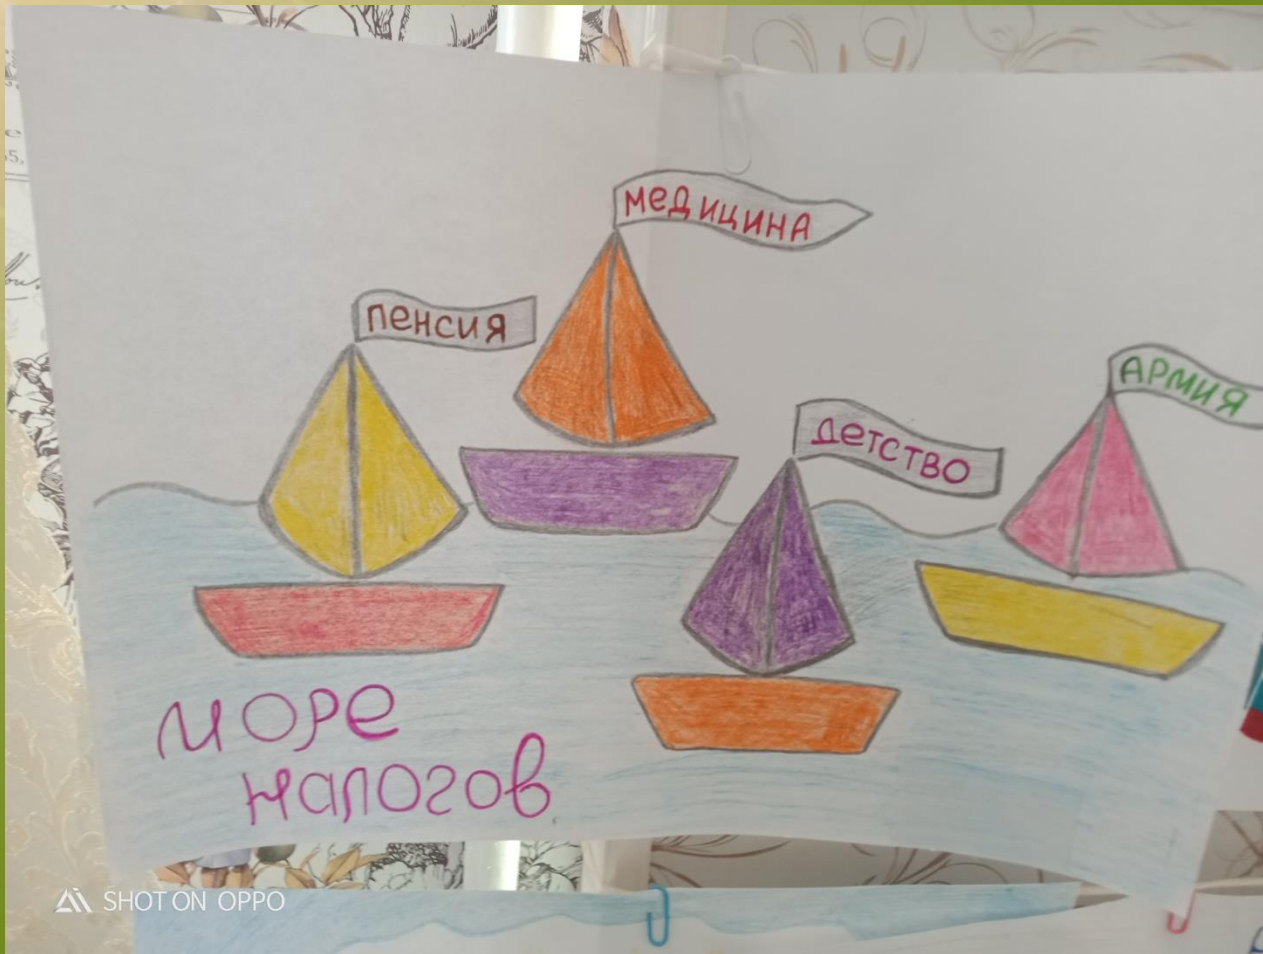 медицина
пенсия
армия
детство
море
налогов
SHOT ON OPPO